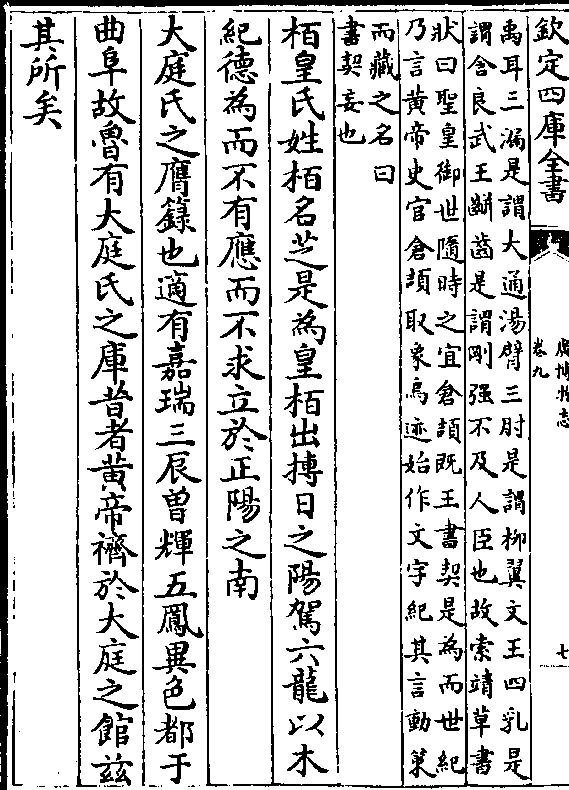 欽定四庫全書
廣博物志
卷九
七
禹耳三漏是謂大通湯臂三肘是謂柳翼文王四乳是
謂含良武王齗齒是謂剛强不及人臣也故索靖草書
狀曰聖皇御世隨時之宜倉頡既王書契是為而世紀
乃言黄帝史官倉頡取象鳥迹始作文字紀其言動䇿
而藏之名曰
書契妄也
栢皇氏姓栢名芝是為皇栢出搏日之陽駕六龍以木
紀德為而不有應而不求立於正陽之南
大庭氏之膺籙也適有嘉瑞三辰曾輝五鳳異色都于
曲阜故魯有大庭氏之庫昔者黄帝禬於大庭之館兹
其所矣